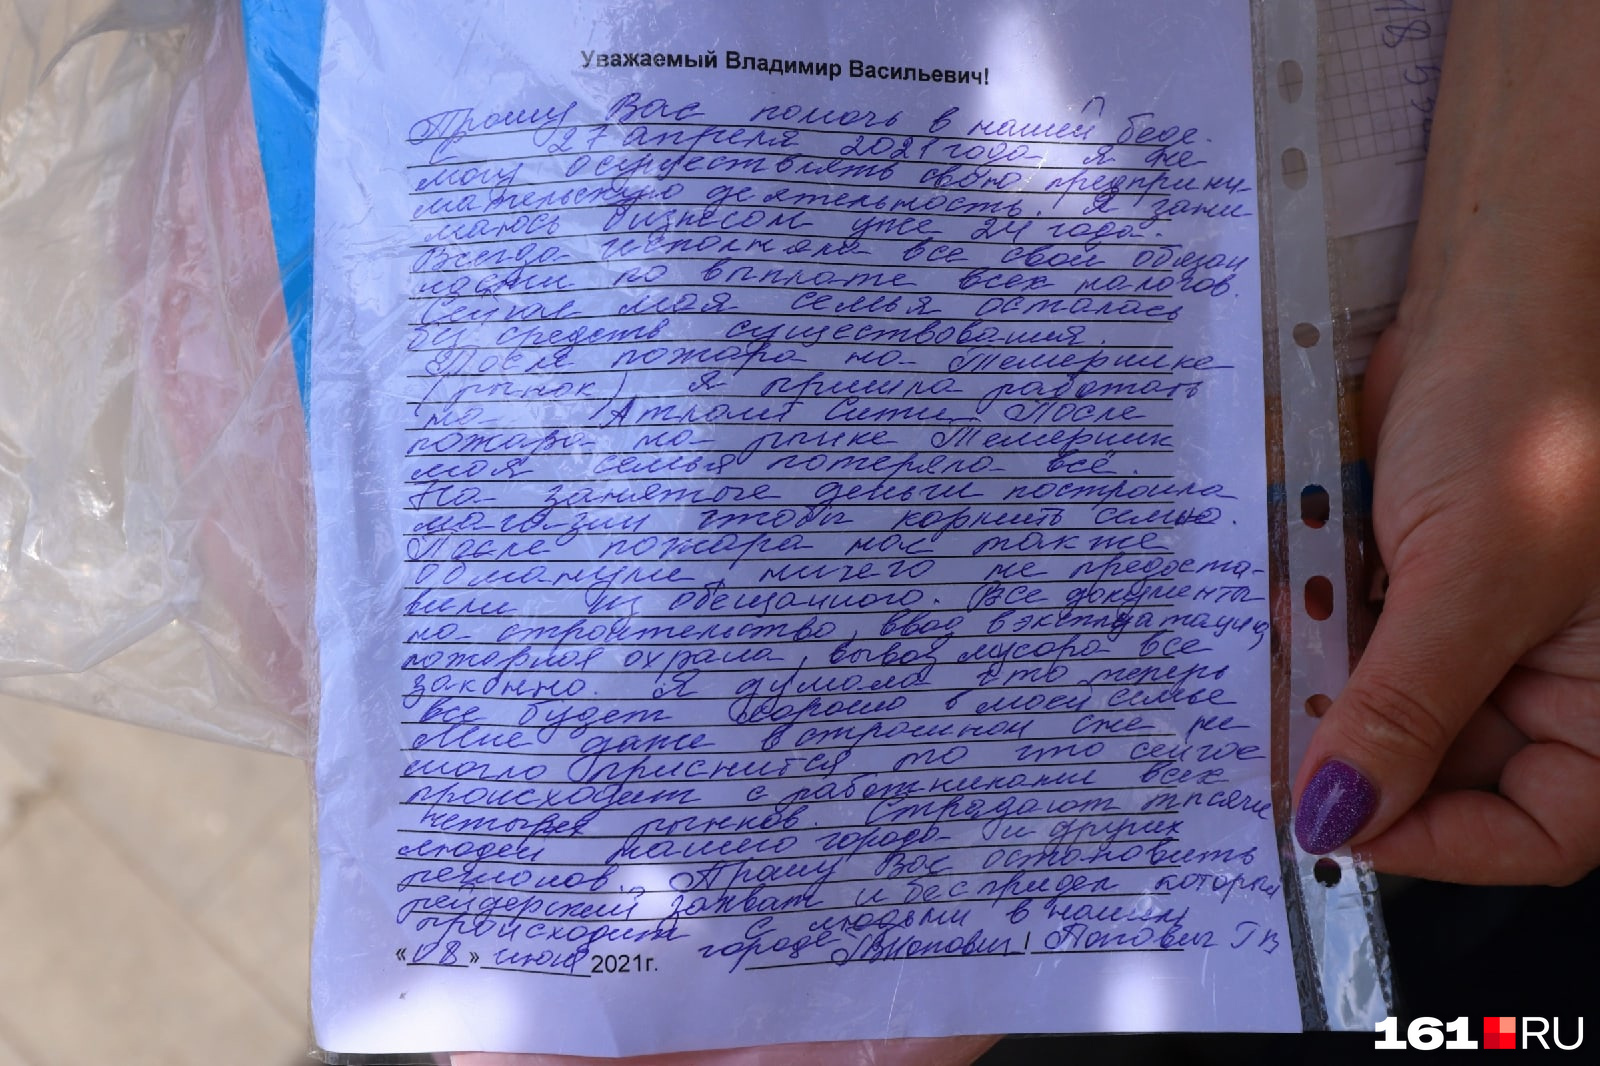 Уважаемый Владимир Васильевич!
Прошу Вас помочь в нашей беде.
С 27 апреля 2021 года я не
могу осуществлять свою предприни-
мательскую деятельность. Я зани-
маюсь бизнесом уже 24 года.
Всегда исполняла все свои обязан
ности по выплате всех налогов.
Сейчас моя семья осталась
без средств существования.
После пожара на Темернике
(рынок) я пришла работать
на Атлант Сити. После
пожара на рынке Темерник
моя семья потеряла всё.
На занятые деньги построила
магазин чтобы кормить семью.
После пожара нас также
обманули, ничего не предоста-
вили из обещанного. Все документы
на строительство, ввод в эксплуатацию,
пожарная охрана, вывоз мусора все
законно. Я думала что теперь
все будет хорошо в моей семье
Мне даже в страшном сне не
могло присниться то что сейчас
происходит с работниками всех
четырех рынков. Страдают тысячи
людей нашего города и других
регионов. Прошу Вас остановить
рейдерский захват и беспредел который
происходит с людьми в нашем
«08» июня 2021г. городе / Попович ГВ
161.RU